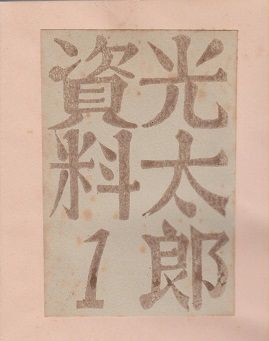 光太郎
資料1